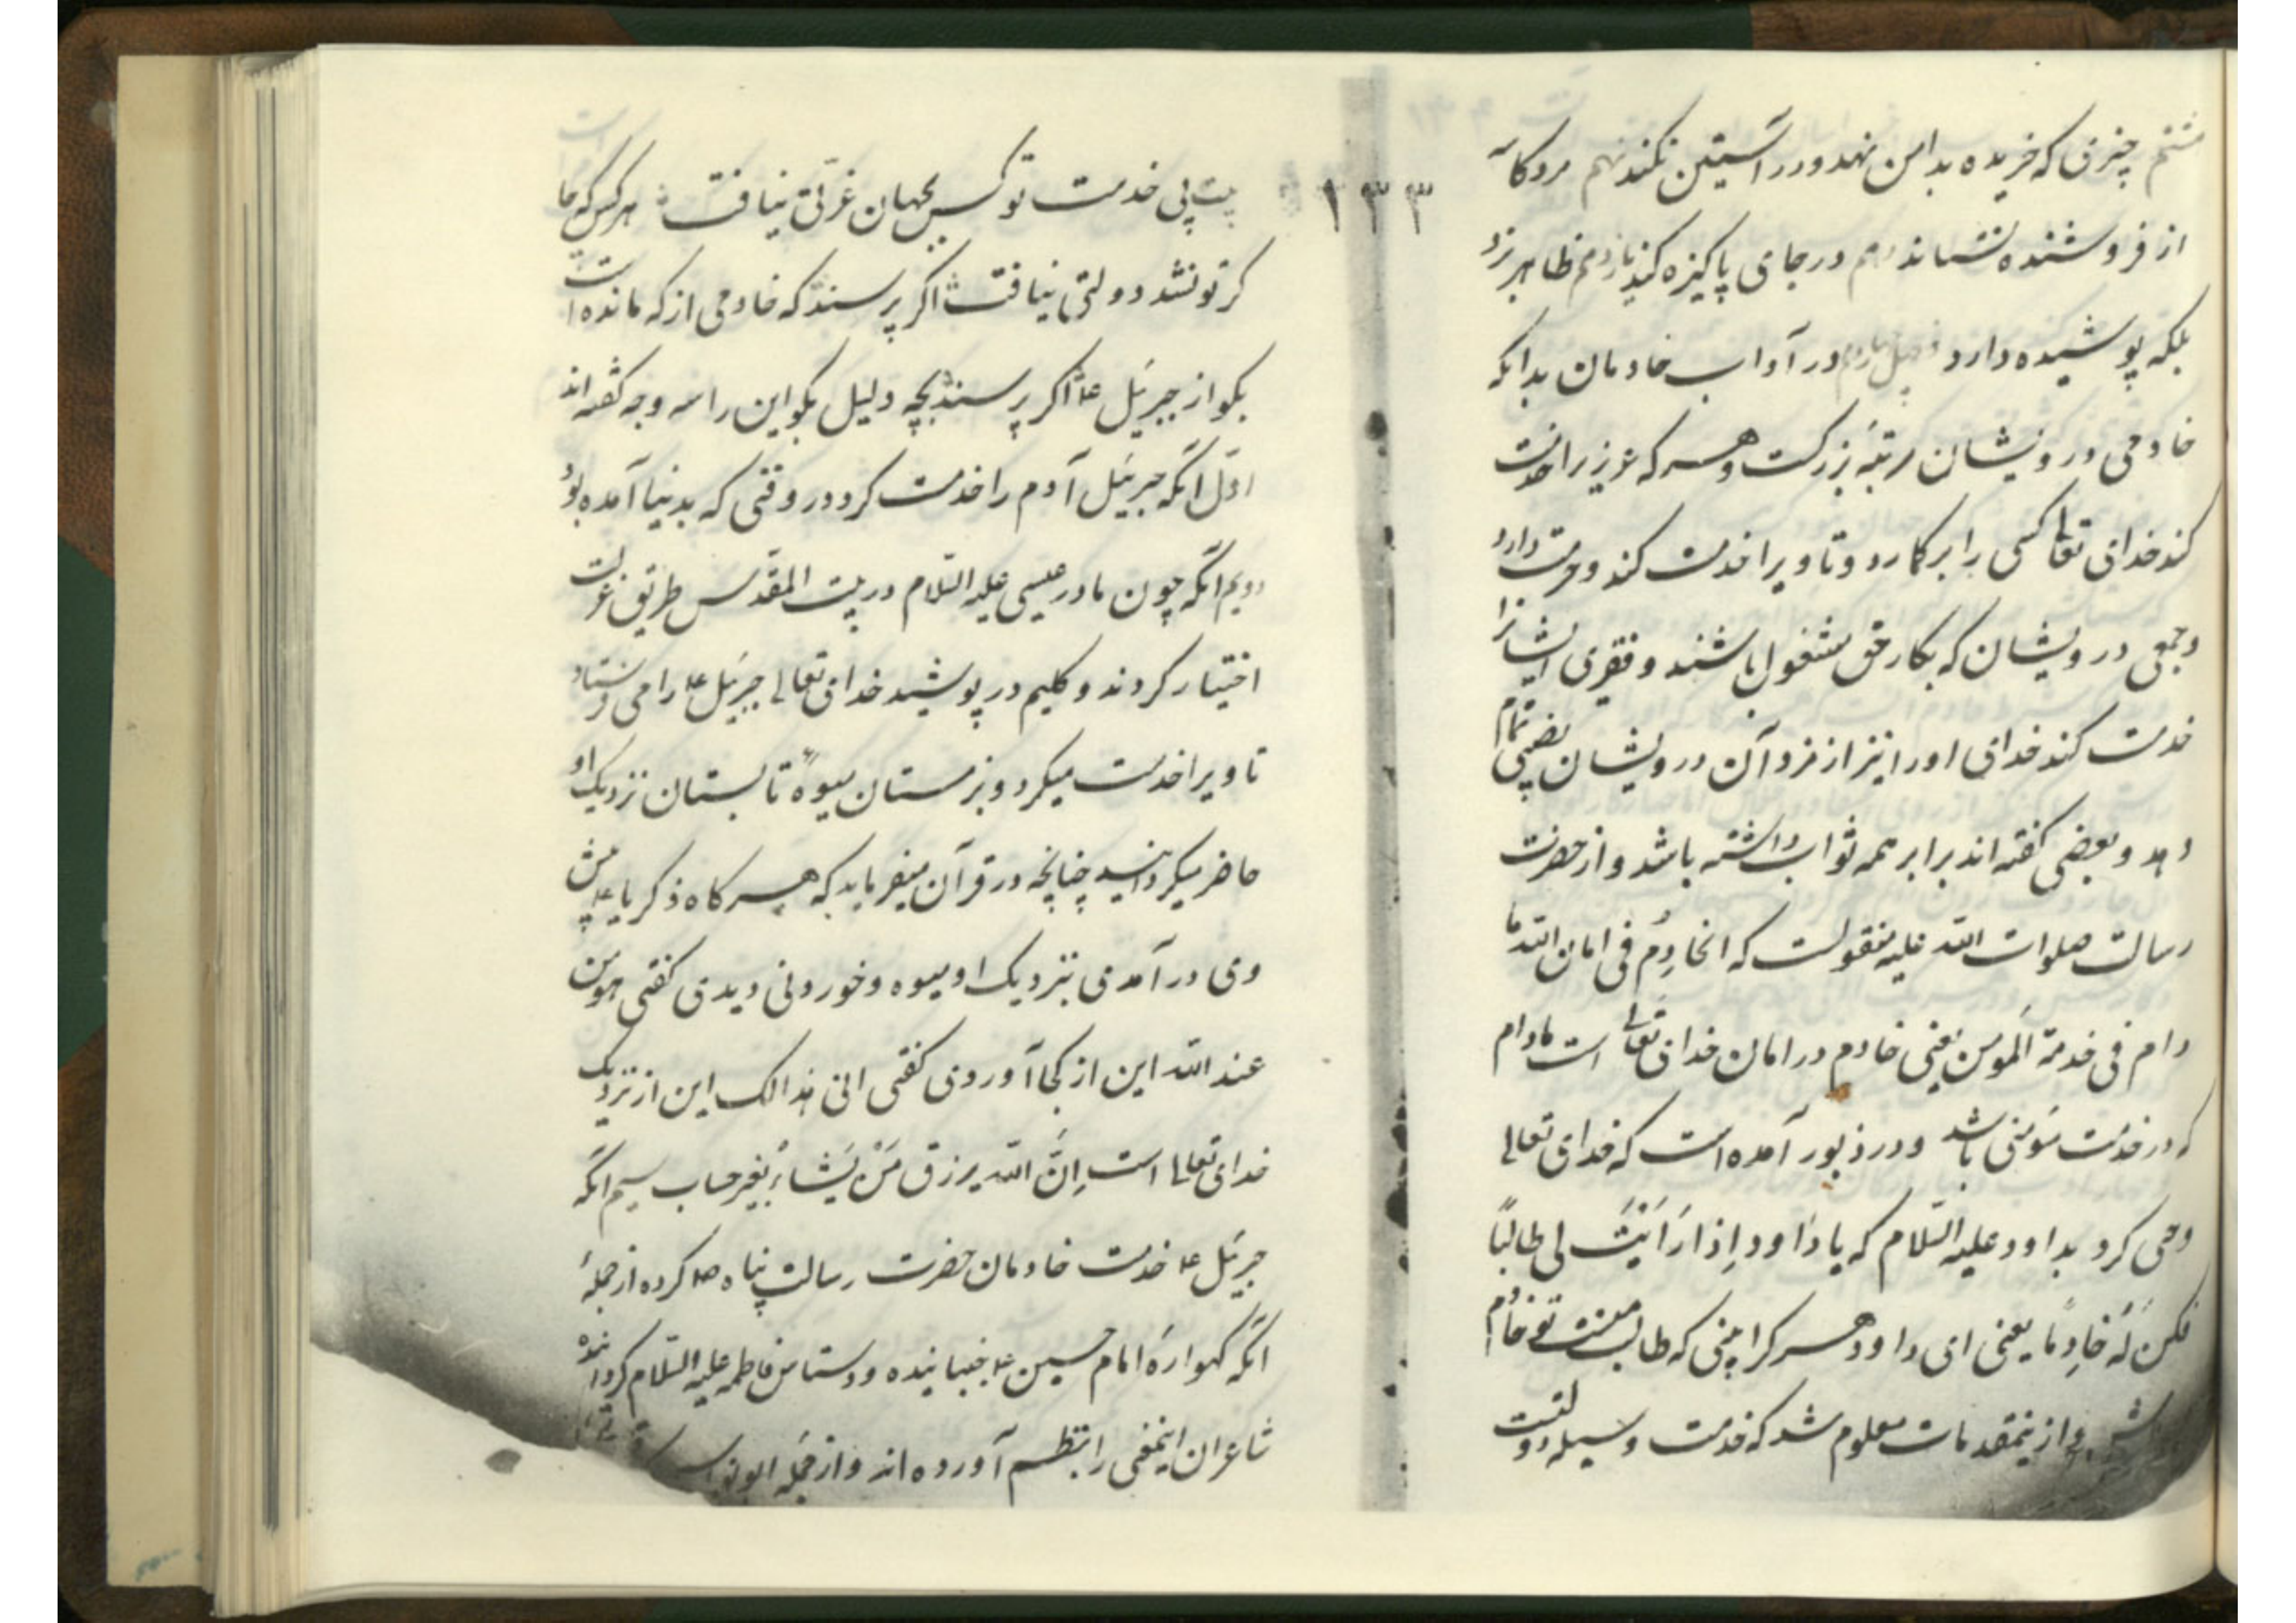 هشتم چیزی که خریده بدامن نهد ودر آستین نکند نهم مردکانه
از فروشنده نستاند دهم در جای پاکیزه کند یازدهم ظاهر نبرد
بلکه پوشیده دارد در آداب خادمان بدانکه
خادمی درویشان مرتبهٔ بزرکست وهرکه عزیز را خدمت
کند خدای تعالی کسی را برکارد وتا ویرا خدمت کند وحرمت دارد
وجمعی درویشان که بکار حق مشغول باشند و فقیری ایشانرا
خدمت کند خدای اورا نیز از مزد آن درویشان نصیبی تمام
دهد وبعضی کفته اند برابر همه ثواب داشته باشد واز حضرت
رسالت صلوات الله علیه منقولست که الخادِمُ فی امان الله ما
دام فی خدمة المومن یعنی خادم در امان خدای تعالی است مادام
که در خدمت مؤمنی باشد ودر زبور آمده است که خدای تعالی
وحی کرد بداود علیه السّلام که یا دَاود اِذا رَاَیْتَ لی طالباً
فکن لَهُ خَادِمًا یعنی ای داود هرکرا بینی که طالب منست تو خادم
باش واز ینمقدمات معلوم شد که خدمت وسیله دولتست
بیت بی خدمت تو کس بجهان عزّتی نیافت هرکس که جا
کر تو نشد دولتی نیافت اکر پرسند که خادمی از که مانده است
بکو از جبرئیل ع اکر پرسند بچه دلیل بکو این را سه وجه کفته اند
اوّل آنکه جبرئیل آدم را خدمت کرد در وقتی که بدنیا آمده بود
دویم آنکه چون مادر عیسی علیه السّلام در بیت المقدّس طریق عزلت
اختیار کردند و کلیم در پوشید خدای تعالی جبرئیل ع را می فرستاد
تا ویرا خدمت میکرد و بزمستان میوهٔ تابستان نزدیک او
حاضر میکردانید چنانچه در قرآن میفرماید که هرکاه ذکریا ع پیش
وی در آمدی بنزدیک او میوه وخوردنی دیدی کفتی هو من
عند الله این از کجا آوردی کفتی انی لک هذا این از نزدیک
خدای تعالی است اِنَّ الله یرزق مَنْ یَشاءُ بغیر حساب سیم آنکه
جبرئیل ع خدمت خادمان حضرت رسالت پناه ص کرده از جملهٔ
آنکه کهوارهٔ امام حسین ع جنبانیده ودستاس فاطمه علیه السّلام کردانیده
شاعران اینمعنی را بنظم آورده اند واز جمله ابونواس
۱۳۳